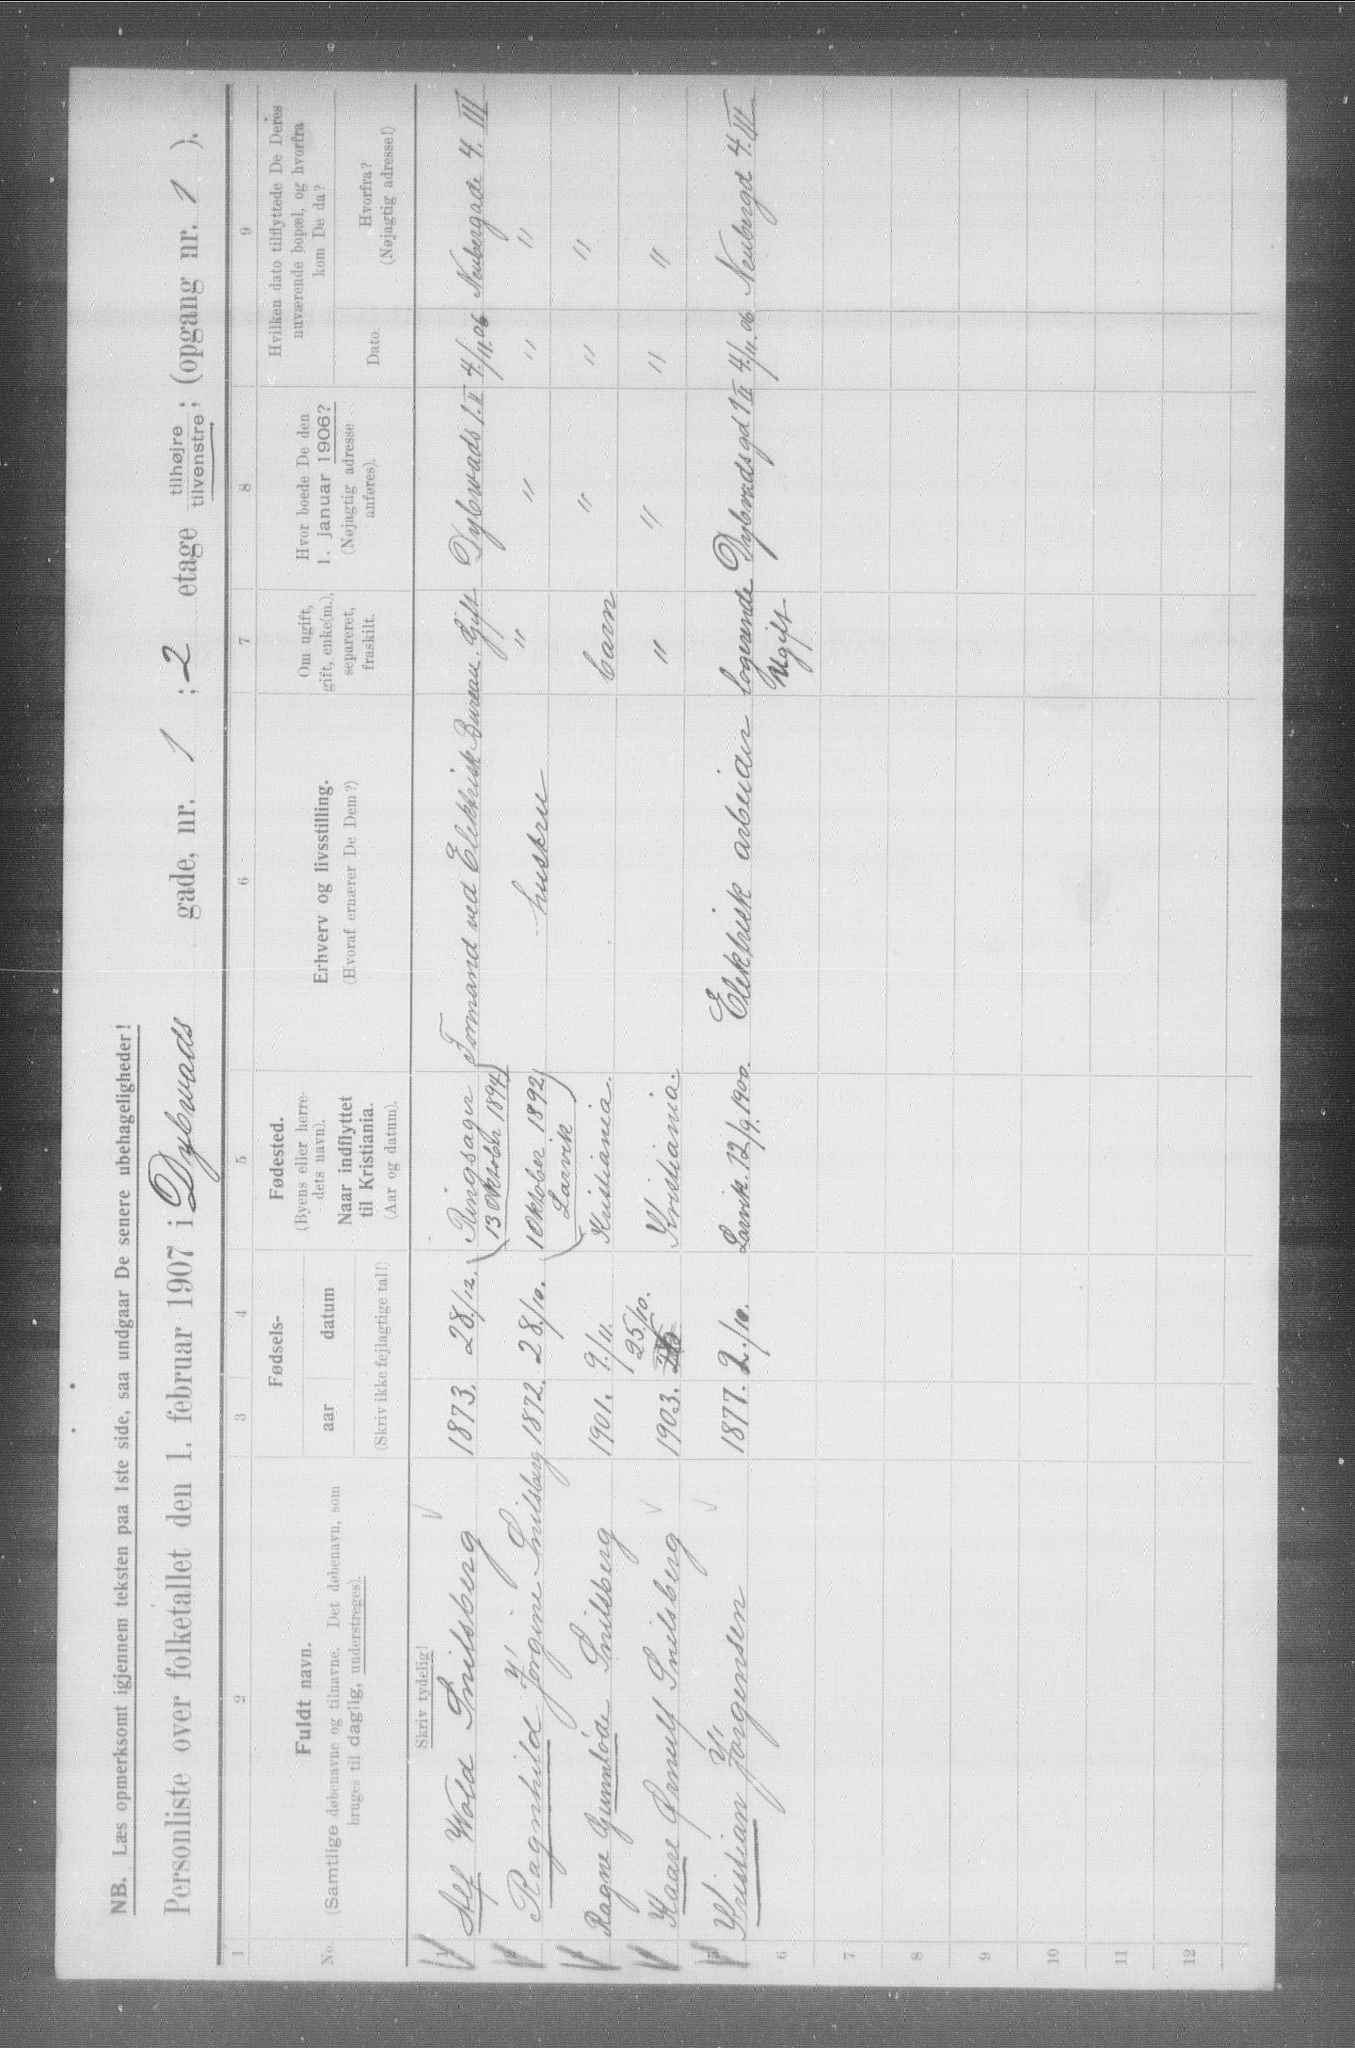 NB. Læs opmerksomt igjennem teksten paa 1ste side, saa undgaar De senere ubehageligheder!
Personliste over folketallet den 1. februar 1907 i Dybwads gade, nr. 1 ; 2 etage tilhøjre tilvenstre ; (opgang nr. 1 ).
1 2 3 4 5 6 7 8 9
No.
Fuldt navn.
(Samtlige døbenavne og tilnavne. Det døbenavn, som
bruges til daglig, understreges).
Fødsels-
aar datum
(Skriv ikke fejlagtige tal!)
Fødested.
(Byens eller herre-
dets navn).
Naar indflyttet
til Kristiania.
(Aar og datum).
Erhverv og livsstilling.
(Hvoraf ernærer De Dem?)
Om ugift,
gift, enke(m.),
separeret,
fraskilt.
Hvor boede De den
1. januar 1906?
(Nøjagtig adresse
anføres).
Hvilken dato tilflyttede De Deres
nuværende bopæl, og hvorfra
kom De da?
Dato.
Hvorfra?
(Nøjagtig adresse!)
Skriv tydelig!
1 Alf Wold Snilsberg 1873. 28/12. Ringsager 13 Oktobr 1894 Formand ved Elektrisk Bureau. Gift Dybwads 1. II 4/11.06 Neubergade 4. III
2 Ragnhild Jörgine Snilsberg 1872. 28/10. 1 Oktober 1892 Larvik huskru " " " "
3 Ragne Gunnlöde Snilsberg 1901. 9/11. Kristiania. barn " " "
4 Kaare Arnulf Snilsberg 1903. 25/10. Kristiania. " " " "
5 Kristian Jörgensen 1877. 2./10. Larvik. 12/9.1900. Elektrisk arbeider logerende Ugift. Dybwadsgd 1 II 4/11.06 Neubergd 4. III
6
7
8
9
10
11
12